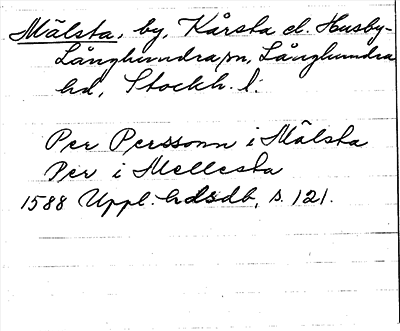 Mälsta, by, Kårsta el. Husby-
Långhundra sn, Långhundra
hd, Stockh. l.
Per Perssonn i Mälsta
Per i Mellesta
1588 Uppl. hdsdb, s. 121.